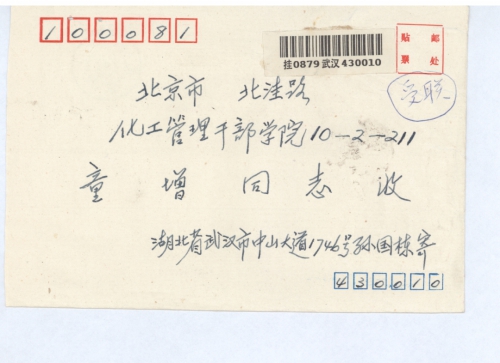 100081
贴邮
票处
挂0879 武汉 430010
受联
北京市 北洼路
化工管理干部学院10-2-211
童增同志收
湖北省武汉市中山大道1746号孙国栋寄
430010